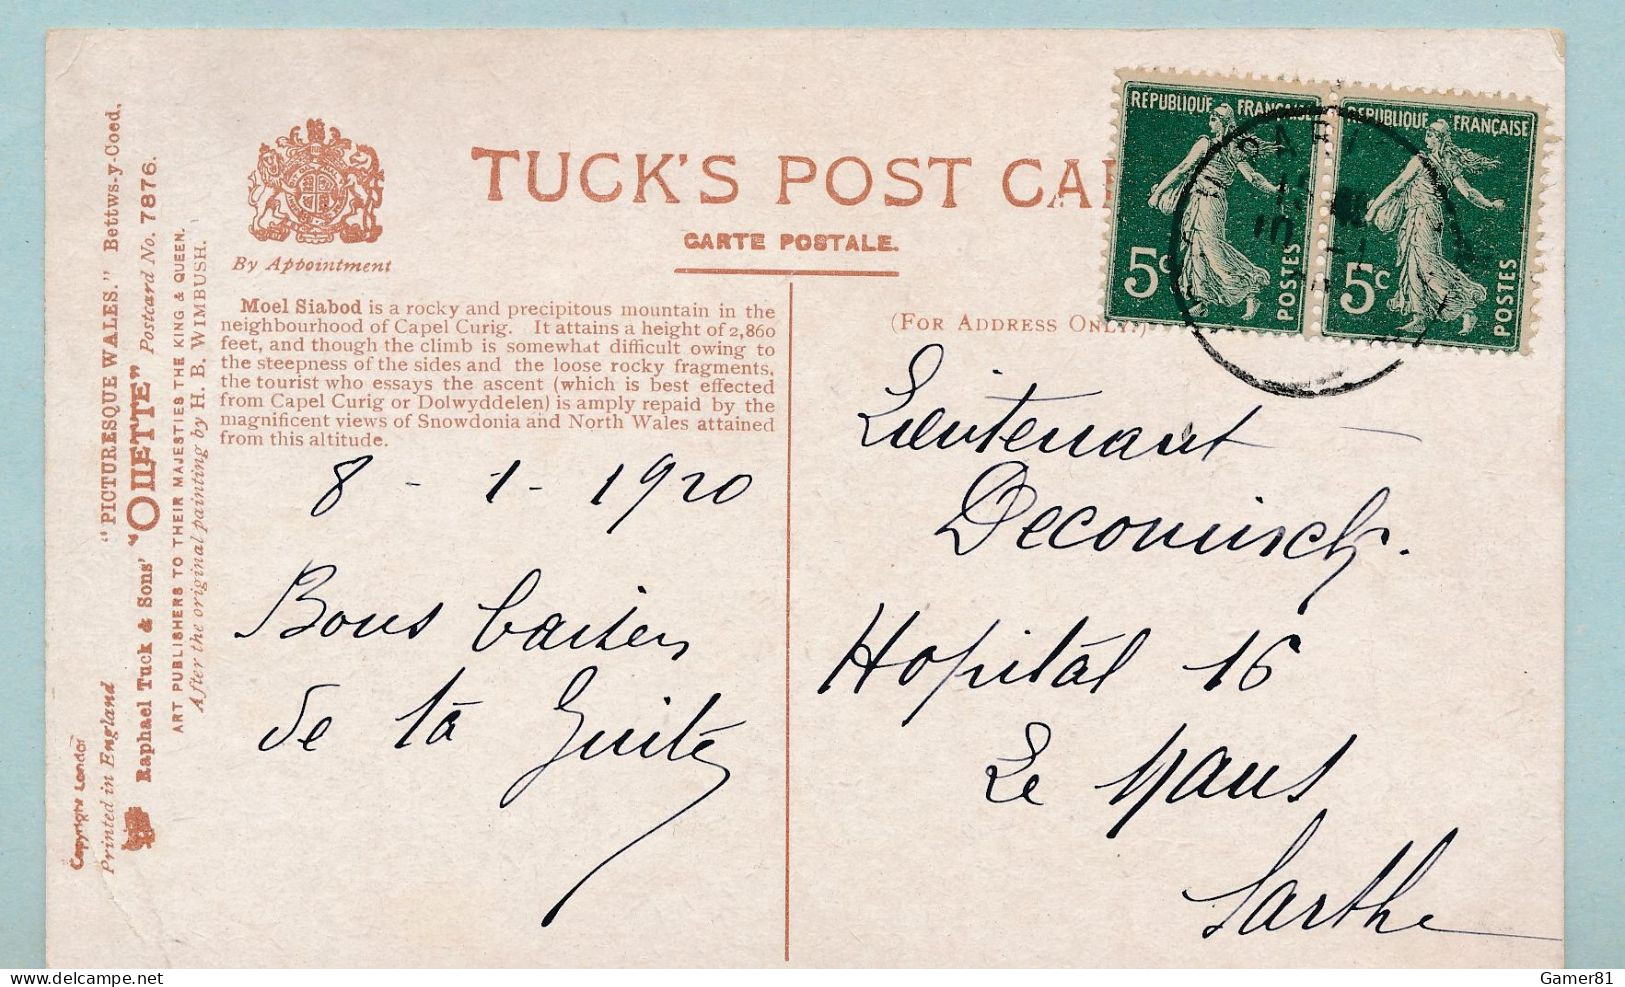 TUCK'S POST CAR
CARTE POSTALE.
By Appointment
"PICTURESQUE WALES." Bettws-y-Coed.
Raphael Tuck & Sons' "OILETTE" Postcard No. 7876.
ART PUBLISHERS TO THEIR MAJESTIES THE KING & QUEEN.
After the original painting by H. B. WIMBUSH.
Copyright London
Printed in England
Moel Siabod is a rocky and precipitous mountain in the
neighbourhood of Capel Curig. It attains a height of 2,860
feet, and though the climb is somewhat difficult owing to
the steepness of the sides and the loose rocky fragments,
the tourist who essays the ascent (which is best effected
from Capel Curig or Dolwyddelen) is amply repaid by the
magnificent views of Snowdonia and North Wales attained
from this altitude.
8 - 1 - 1920
Bons baisers
de ta Guité
(For Address Only.)
REPUBLIQUE FRANÇAISE
5c POSTES
REPUBLIQUE FRANÇAISE
5c POSTES
PARI
Lieutenant
Decomisch.
Hopital 16
Le Mans
Sarthe
www.delcampe.net
Gamer81